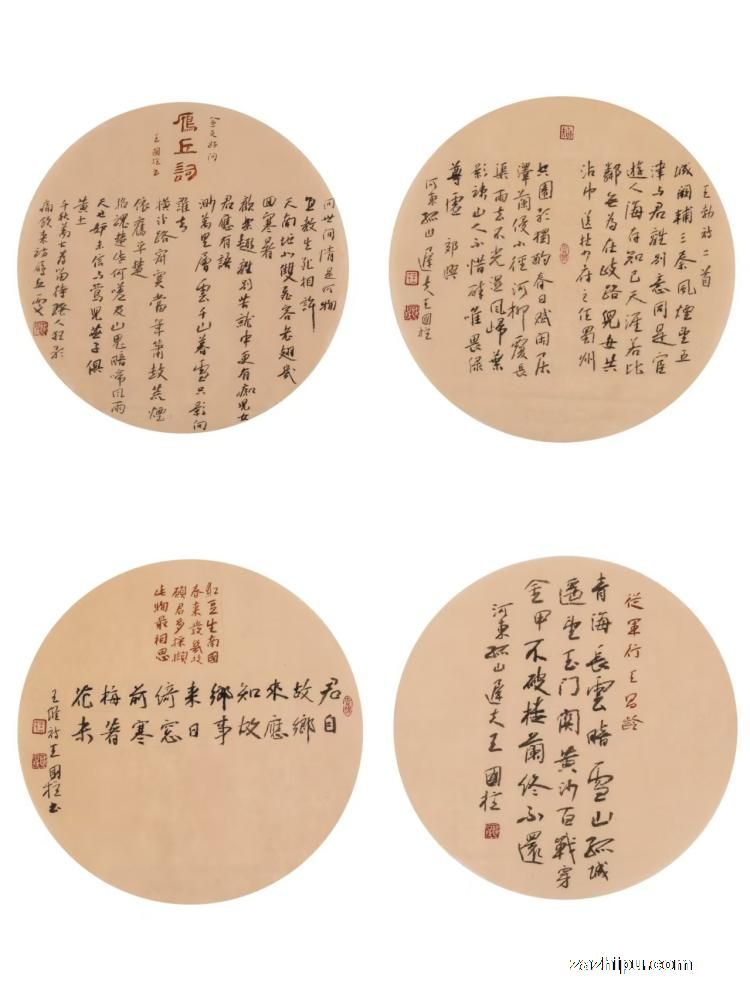 鴈丘詞
金元好問
王國柱書
問世間情是何物
直教生死相許
天南地北雙飛客老翅幾
回寒暑
歡樂趣離別苦就中更有痴兒女
君應有語
渺萬里層雲千山暮雪只影向
誰去
橫汾路寂寞當年簫鼓荒煙
依舊平楚
招魂楚些何嗟及山鬼暗啼風雨
天也妒未信與鶯兒燕子俱
黃土
千秋萬古為留待騷人狂歌
痛飲來訪鴈丘處
王勃詩二首
城闕輔三秦風煙望五
津與君離別意同是宦
遊人海存知己天涯若比
鄰無為在歧路兒女共
沾巾 送杜少府之任蜀州
園歌獨酌春日賦閑居
澤蘭侵小徑河柳覆長
渠雨去花光濕風歸葉
影疏山人不惜醉唯畏綠
尊虛 郊興
河東孤山遲夫王國柱
紅豆生南國
春來發幾枝
願君多採擷
此物最相思
君自
故鄉
來應
知故
鄉事
來日
綺窗
前寒
梅著
花未
王維詩王國柱書
從軍行王昌齡
青海長雲暗雪山孤城
遙望玉門關黃沙百戰穿
金甲不破樓蘭終不還
河東孤山遲夫王國柱
zazhipu.com